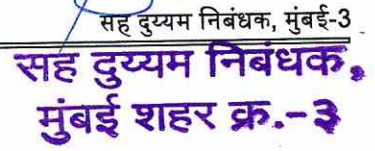 सह दुय्यम निबंधक, मुंबई-3
सह दुय्यम निबंधक,
मुंबई शहर क्र.-३